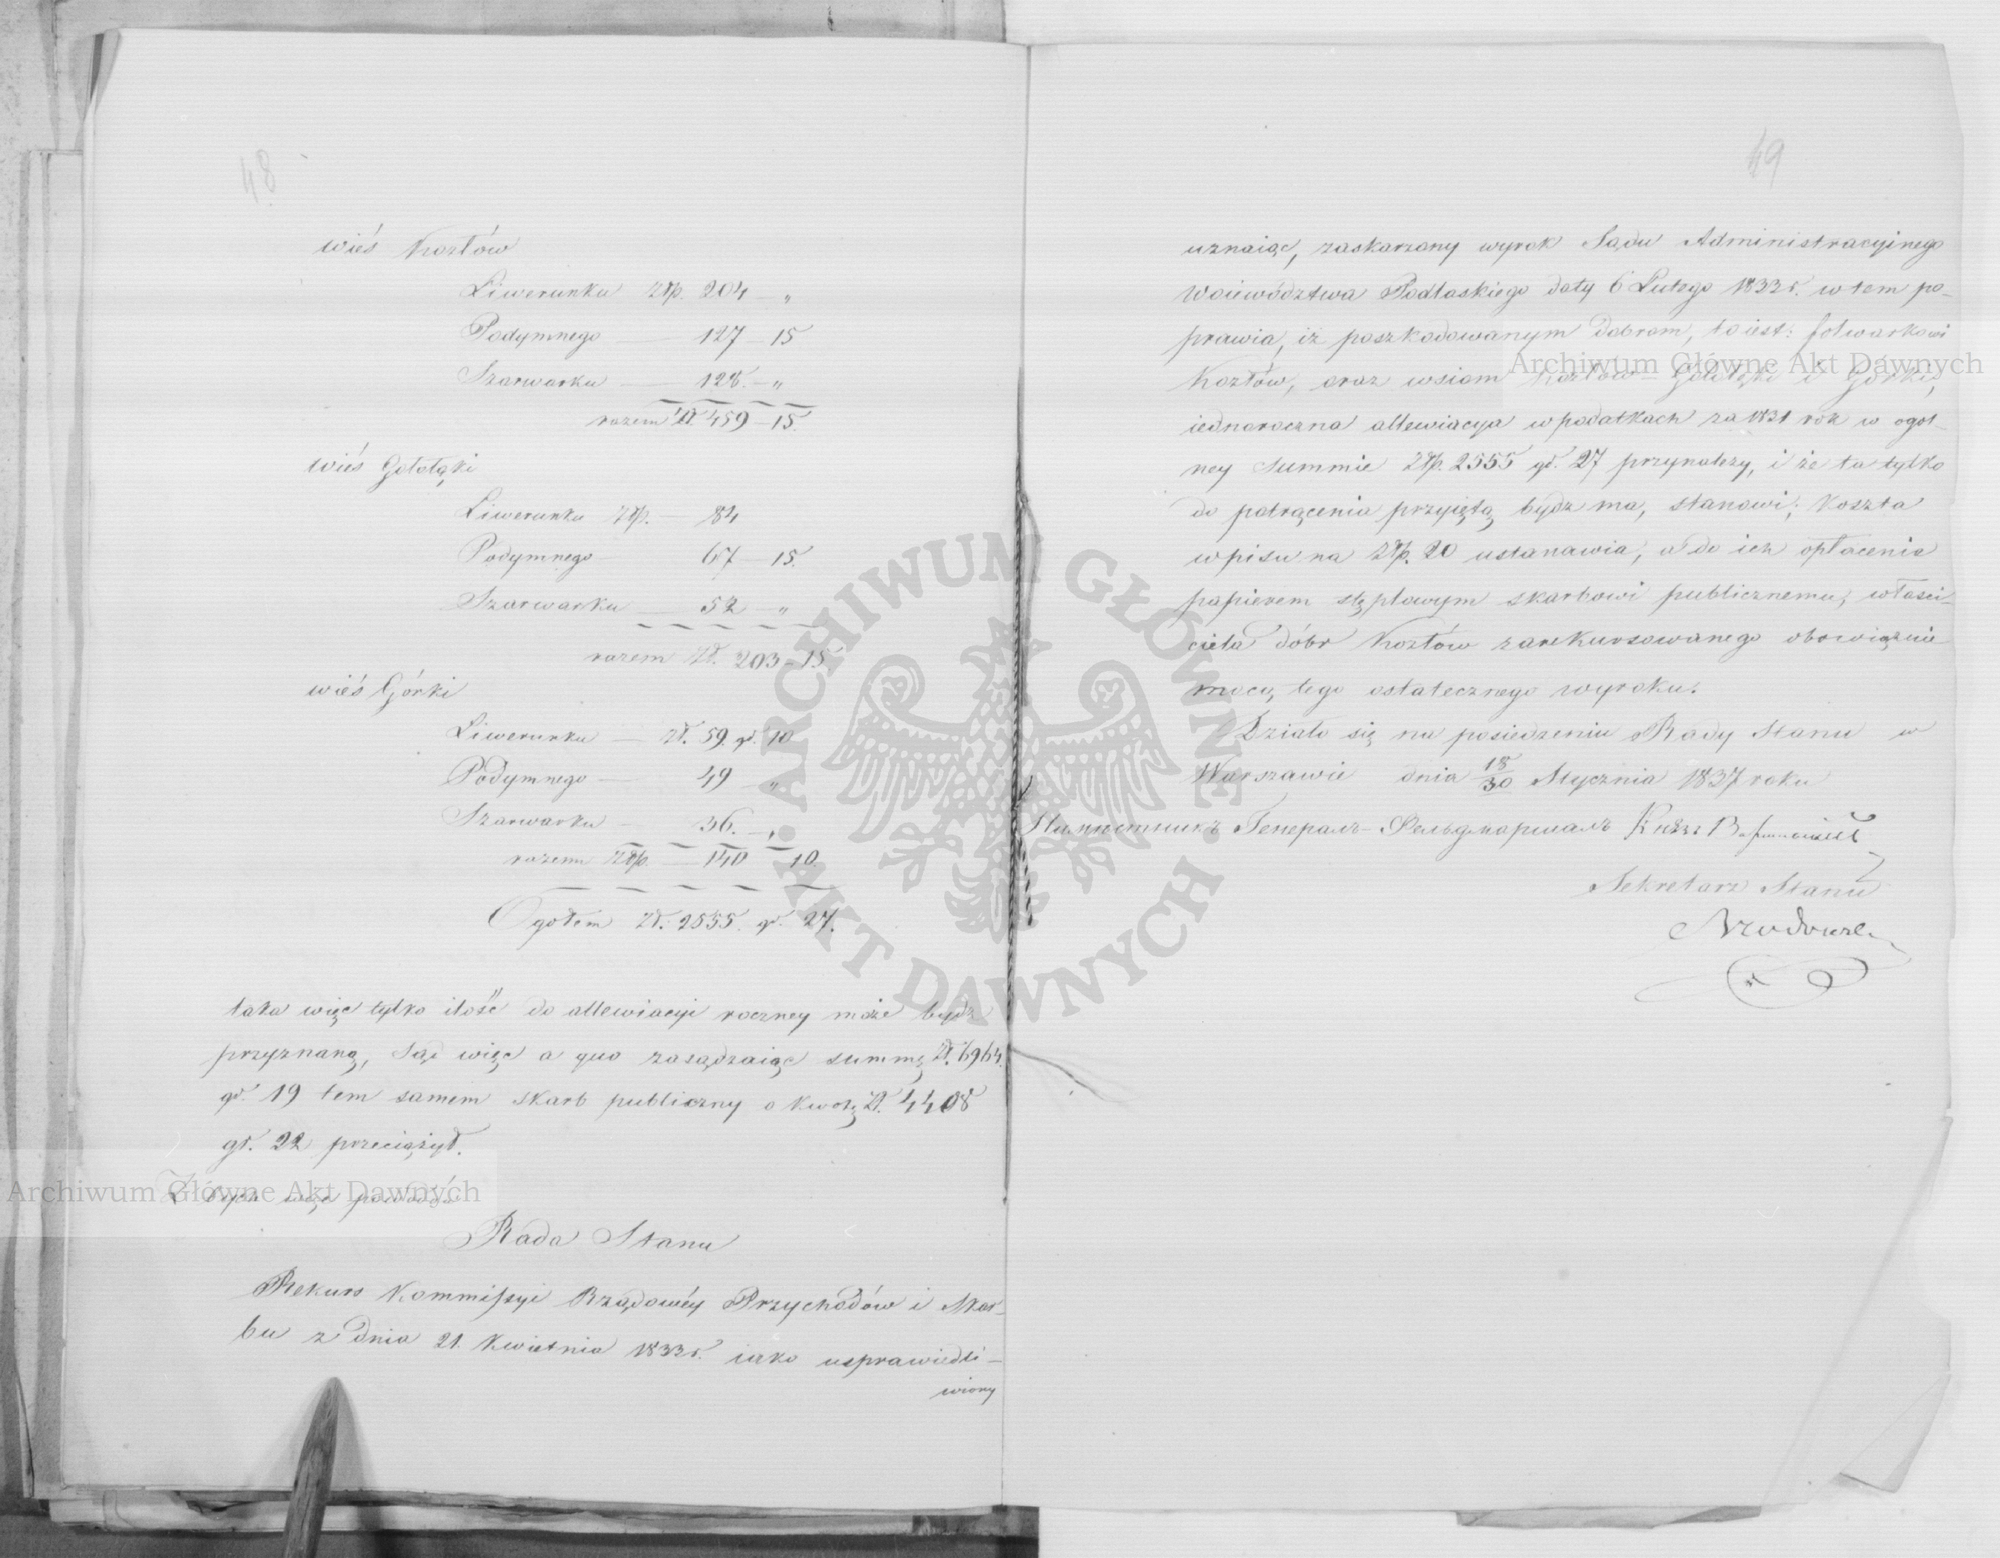 48
wieś Kozłów
Liwerunku Złp. 204 — „
Podymnego — 127 — 15
Szarwarku — 128. — „
razem Zł. 459 — 15.
wieś Gołołąki
Liwerunku Złp. — 84
Podymnego — 67 — 15.
Szarwarku — 52 — „
razem Zł. 203 — 15.
wieś Górki
Liwerunku — Zł. 59. gr. 10
Podymnego — 49 — „
Szarwarku — 36. — „
razem Złp. — 140 — 10.
Ogołem Zł. 2555. gr. 27.
taka więc tylko ilość do allewiacyi roczney może bydź
przyznaną, Sąd więc a quo zasądzaiąc summę Zł. 6964.
gr. 19 tem samem skarb publiczny o kwotę Zł. 4408
gr. 22 przeciążył.
Z tych więc powodów
Rada Stanu
Rekurs Kommissyi Rządowéy Przychodów i Skar-
bu z dnia 21. Kwietnia 1833 r. iako usprawiedli-
wiony
49
uznaiąc, zaskarżony wyrok Sądu Administracyinego
Woiewództwa Podlaskiego daty 6 Lutego 1833 r. w tem po-
prawia, iż poszkodowanym dobrom, to iest: folwarkowi
Kozłów, oraz wsiom Kozłow — Gołołąki i Górki,
iednoroczna allewiacya w podatkach za 1831 rok w ogol-
ney summie Złp. 2555 gr. 27 przynależy, i że ta tylko
do potrącenia przyiętą bydź ma, stanowi; koszta
wpisu na Złp. 20 ustanawia, a do ich opłacenia
papierem stęplowym skarbowi publicznemu, właści-
ciela dóbr Kozłów zarekursowanego obowiązuie
mocą tego ostatecznego wyroku.
Działo się na posiedzeniu Rady Stanu w
Warszawie dnia 18/30 Stycznia 1837 roku
Намѣстникъ Генералъ-Фельдмаршалъ Князь Варшавскій
Sekretarz Stanu
Archiwum Główne Akt Dawnych
Archiwum Główne Akt Dawnych
ARCHIWUM GŁÓWNE
AKT DAWNYCH